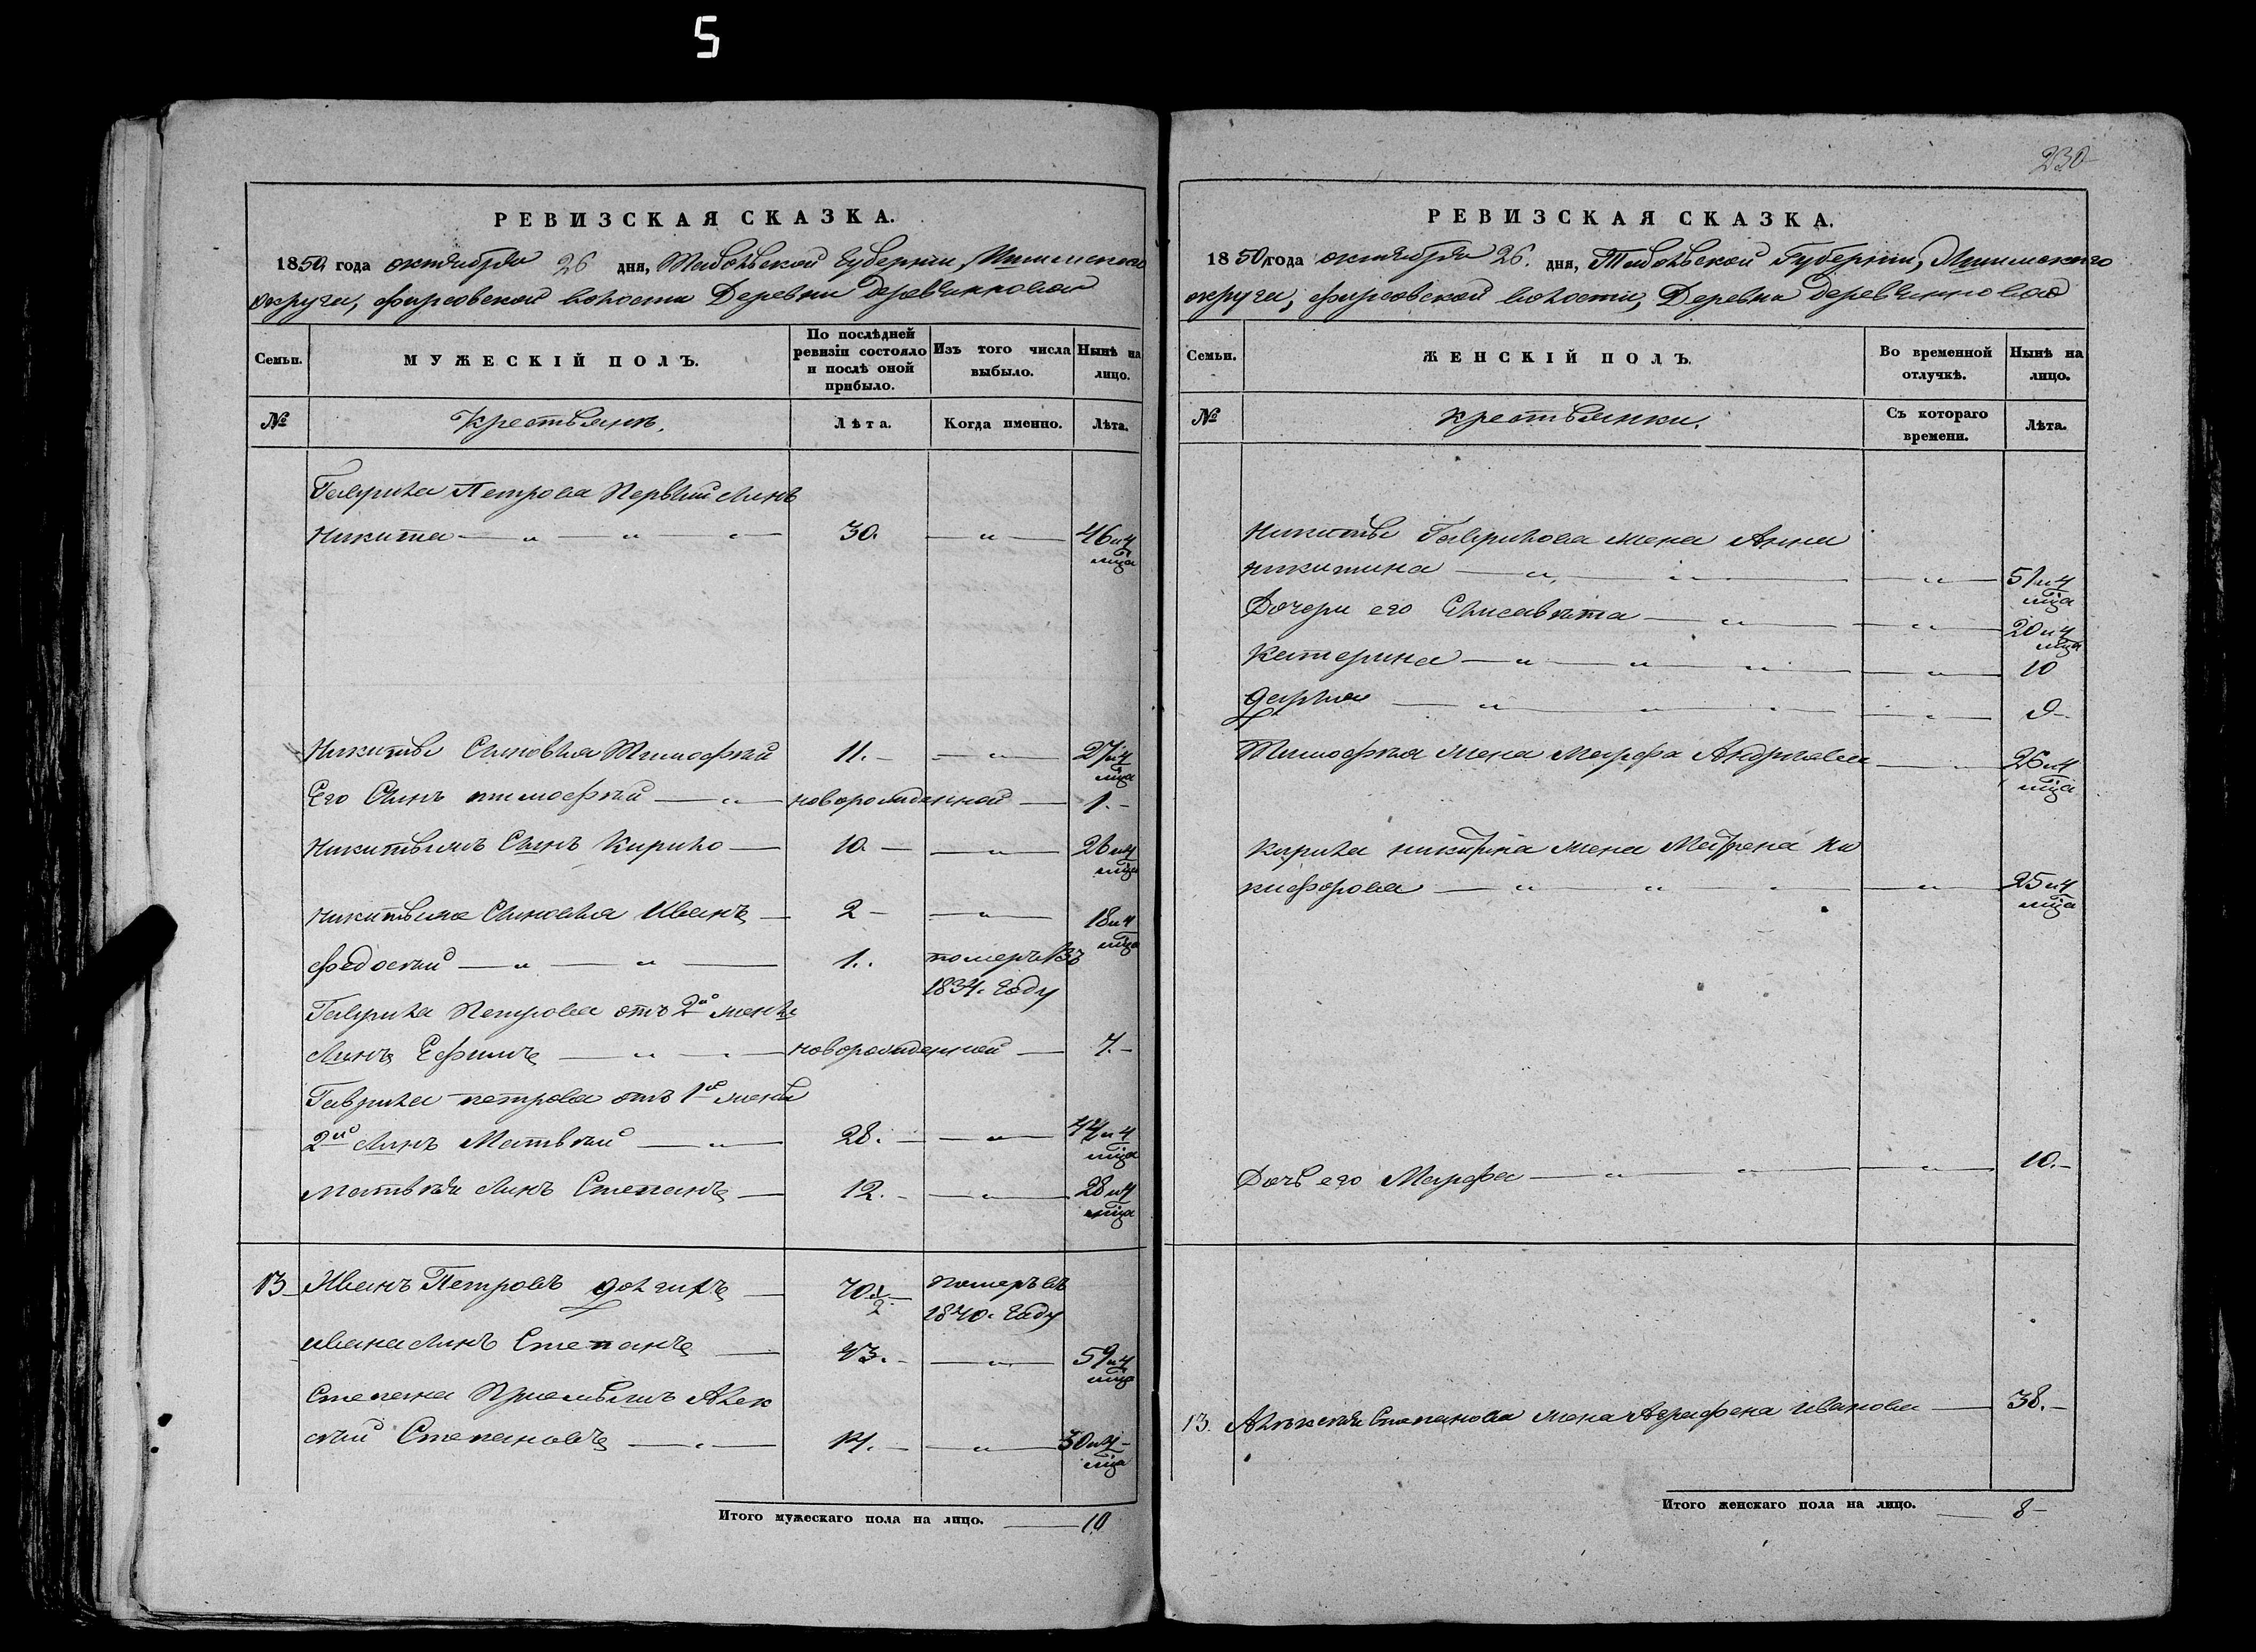 5
230
РЕВИЗСКАЯ СКАЗКА.
1850 года октября 26 дня, Тобольской Губернии, Ишимскаго
округи, фирсовской волости Деревни деревянновой
Семьи.
МУЖЕСКІЙ ПОЛЪ.
По послѣдней ревизіи состояло и послѣ оной прибыло.
Изъ того числа выбыло.
Нынѣ на лицо.
№
Крестьянъ.
Лѣта.
Когда именно.
Лѣта.
Гаврила Петрова Первый сынъ
Никита — 30. — 46 и 4 мца
Никиты Сыновья Тимофѣй 11. — 27 и 4 мца
Его Сынъ тимофѣй — новорожденной — 1.
Никитынъ Сынъ Кирило — 10. — 26 и 4 мца
никитины Сыновья Иванъ — 2 — 18 и 4 мца
федосѣй — 1. померъ въ
1834. Году
Гаврила Петрова отъ 2й жены
сынъ Ефимъ — новорожденной — 7.
Гаврила петрова отъ 1й жены
2й сынъ Матвѣй — 28. — 44 и 4 мца
матвѣя сынъ Степанъ — 12. — 28 и 4 мца
13 Иванъ Петровъ долгихъ — 70 1/2 Померъ въ
1840. Году
ивана сынъ Степанъ — 43. — 59 и 4 мца
Степана Приемышъ Алек
сѣй Степановъ — 14. — 30 и 4 мца
Итого мужескаго пола на лицо. — 10
РЕВИЗСКАЯ СКАЗКА.
1850 года октября 26. дня, Тобольской Губернии, Ишимскаго
округи, фирсовской волости, Деревни деревянновой
Семьи.
ЖЕНСКІЙ ПОЛЪ.
Во временной отлучкѣ.
Нынѣ на лицо.
№
крестьянки.
Съ котораго времени.
Лѣта.
Никиты Гаврилова жена Анна
никитина — 51 и 4 мца
Дочери его Елисавѣта — 20 и 4 мца
Катерина — 10
дарья — 9
Тимофѣя жена Марфа Андриева — 26 и 4 мца
Кирила никитина жена Матрена Ни
кифорова — 25 и 4 мца
Дочь его Марфа — 10.
13. Алексѣя Степанова жена Аграфена иванова — 38.
Итого женскаго пола на лицо. — 8